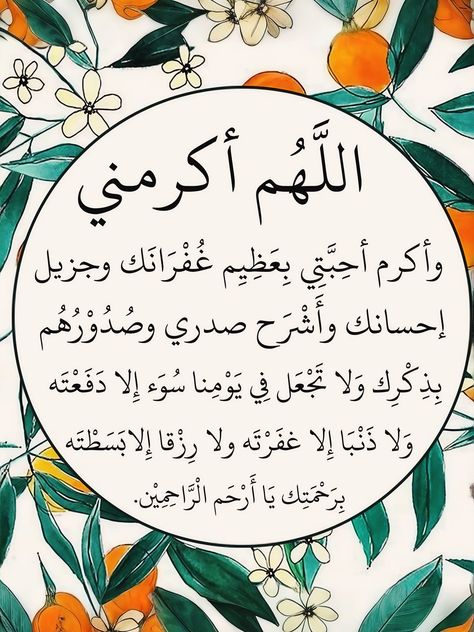 اللَّهُم أكرمني
وأكرم أحِبَّتِي بِعَظِيِم غُفْرَانَك وجزيل
إحسانك وأَشْرَح صدري وصُدُوْرُهُم
بِذِكْرِك وَلا تَجْعَل فِي يَوْمِنا سُوَء إِلا دَفَعْتَه
وَلا ذَنْبَا إِلا غفَرْتَه ولا رِزْقا إِلا بَسَطْتَه
بِرَحْمَتِك يَا أَرْحَم الْرَّاحِمِيْن.